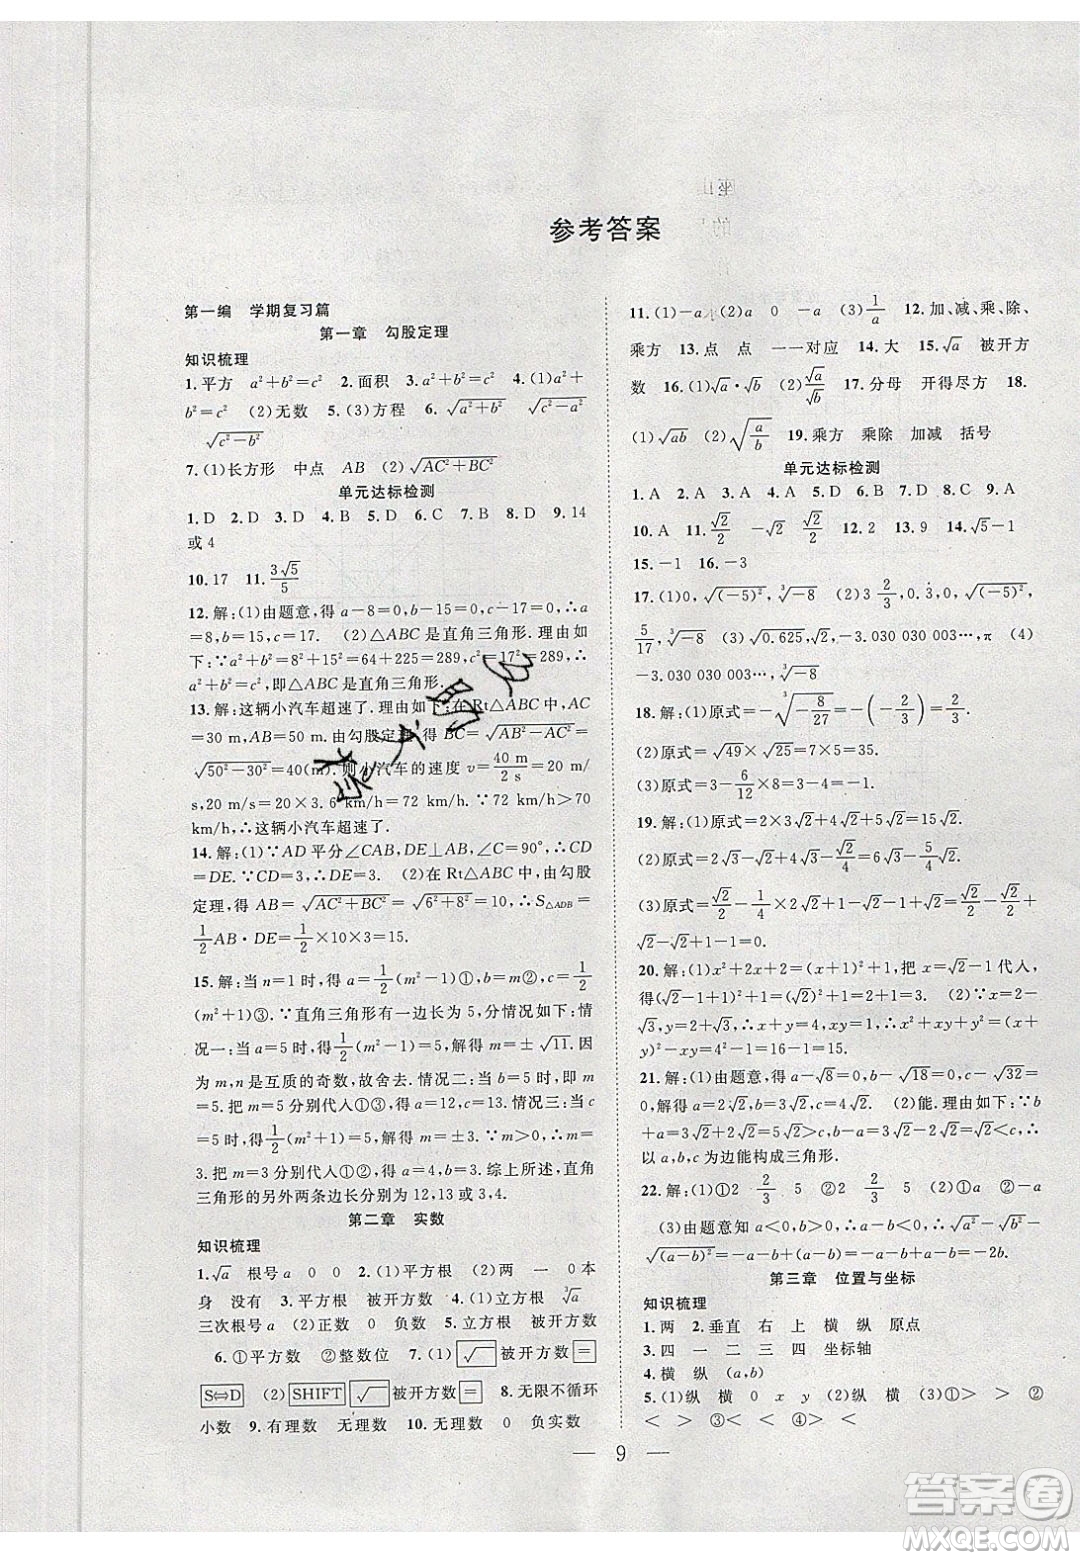 参考答案
第一编 学期复习篇
第一章 勾股定理
知识梳理
1.平方 a²+b²=c² 2.面积 3.a²+b²=c² 4.(1)a²+
b²=c² (2)无数 5.(3)方程 6.√(a²+b²) √(c²-a²)
√(c²-b²)
7.(1)长方形 中点 AB (2)√(AC²+BC²)
单元达标检测
1.D 2.D 3.D 4.A 5.D 6.C 7.B 8.D 9.14
或4
10.17 11.3√5/5
12.解:(1)由题意,得a-8=0,b-15=0,c-17=0,∴a
=8,b=15,c=17. (2)△ABC是直角三角形.理由如
下:∵a²+b²=64+225=289,c²=17²=289,∴
a²+b²=c²,即△ABC是直角三角形.
13.解:这辆小汽车超速了.理由如下:在Rt△ABC中,AC
=30 m,AB=50 m.由勾股定理,得BC=√(AB²-AC²)=
√(50²-30²)=40(m).则小汽车的速度v=40 m/2 s=20 m/
s,20 m/s=20×3.6 km/h=72 km/h.∵72 km/h>70
km/h,∴这辆小汽车超速了.
14.解:(1)∵AD平分∠CAB,DE⊥AB,∠C=90°,∴CD
=DE.∵CD=3,∴DE=3. (2)在Rt△ABC中,由勾股
定理,得AB=√(AC²+BC²)=√(6²+8²)=10,∴S△ADB=
1/2AB·DE=1/2×10×3=15.
15.解:当n=1时,得a=1/2(m²-1)①,b=m②,c=1/2
(m²+1)③.∵直角三角形有一边长为5,分情况如下:情
况一:当a=5时,得1/2(m²-1)=5,解得m=±√11.因
为m,n是互质的奇数,故舍去.情况二:当b=5时,得m
=5.把m=5分别代入①③,得a=12,c=13.情况三:当c
=5时,得1/2(m²+1)=5,解得m=±3.∵m>0,∴m=
3.把m=3分别代入①②,得a=4,b=3.综上所述,直角
三角形的另外两条边长分别为12,13或3,4.
第二章 实数
知识梳理
1.√a 根号a 0 0 2.(1)平方根 (2)两 一 0本
身 没有 3.平方根 被开方数 4.(1)立方根 ³√a
三次根号a (2)正数 0 负数 5.立方根 被开方数
6.①平方数 ②整数位 7.(1)√ 被开方数 =
S⇔D (2)SHIFT √ 被开方数 = 8.无限不循环
小数 9.有理数 无理数 10.无理数 0 负实数
11.(1)-a (2)a 0 -a (3)1/a 12.加、减、乘、除、
乘方 13.点 点 一一对应 14.大 15.√a 被开方
数 16.(1)√a·√b (2)√a/√b 17.分母 开得尽方 18.
(1)√ab (2)√(a/b) 19.乘方 乘除 加减 括号
单元达标检测
1.A 2.A 3.C 4.A 5.D 6.B 7.D 8.C 9.A
10.A 11.√2/2 -√2 √2/2 12.2 13.9 14.√5-1
15.-1 16.-3
17.(1)0,√(-5)²,³√-8 (2)3 2/3,0.3̇,√(-5)²,
5/17,³√-8 (3)√0.625,√2,-3.030 030 003…,π (4)
-3.030 030 003…,³√-8
18.解:(1)原式=-³√(-8/27)=-(-2/3)=2/3.
(2)原式=√49×√25=7×5=35.
(3)原式=3-6/12×8=3-4=-1.
19.解:(1)原式=2×3√2+4√2+5√2=15√2.
(2)原式=2√3-√3+√2/4=√3+√2/4.
(3)原式=√2-1/4×2√2+1-√2/2-1=√2-√2/2+1-
√2/2-1=√2-√2=0.
20.解:(1)x²+2x+2=(x+1)²+1,把x=√2-1代入,
得(√2-1+1)²+1=(√2)²+1=2+1=3. (2)∵x=2-
√3,y=2+√3,∴x+y=4,xy=1,∴x²+y²+xy=(x+
y)²-xy=4²-1=16-1=15.
21.解:(1)由题意,得a-√8=0,b-√18=0,c-√32=
0,解得a=2√2,b=3√2,c=4√2. (2)能.理由如下:∵b
+a=3√2+2√2=5√2>c,b-a=3√2-2√2=√2<c,∴
以a,b,c为边能构成三角形.
22.解:(1)①2 2/3 5 (2)①2 2/3 5 ①a ②-a
(3)由题意知a<0,b>0,∴a-b<0,∴√a²-√b²-
√(a-b)²=-a-b-(b-a)=-a-b-b+a=-2b.
第三章 位置与坐标
知识梳理
1.两 2.垂直 右 上 横 纵 原点
3.四 一 二 三 四 坐标轴
4.横 纵 (a,b)
5.(1)纵 横 0 x y (2)纵 横 (3)①> > ②
< > ③< < ④> <
9
答案圈
MXQE.COM